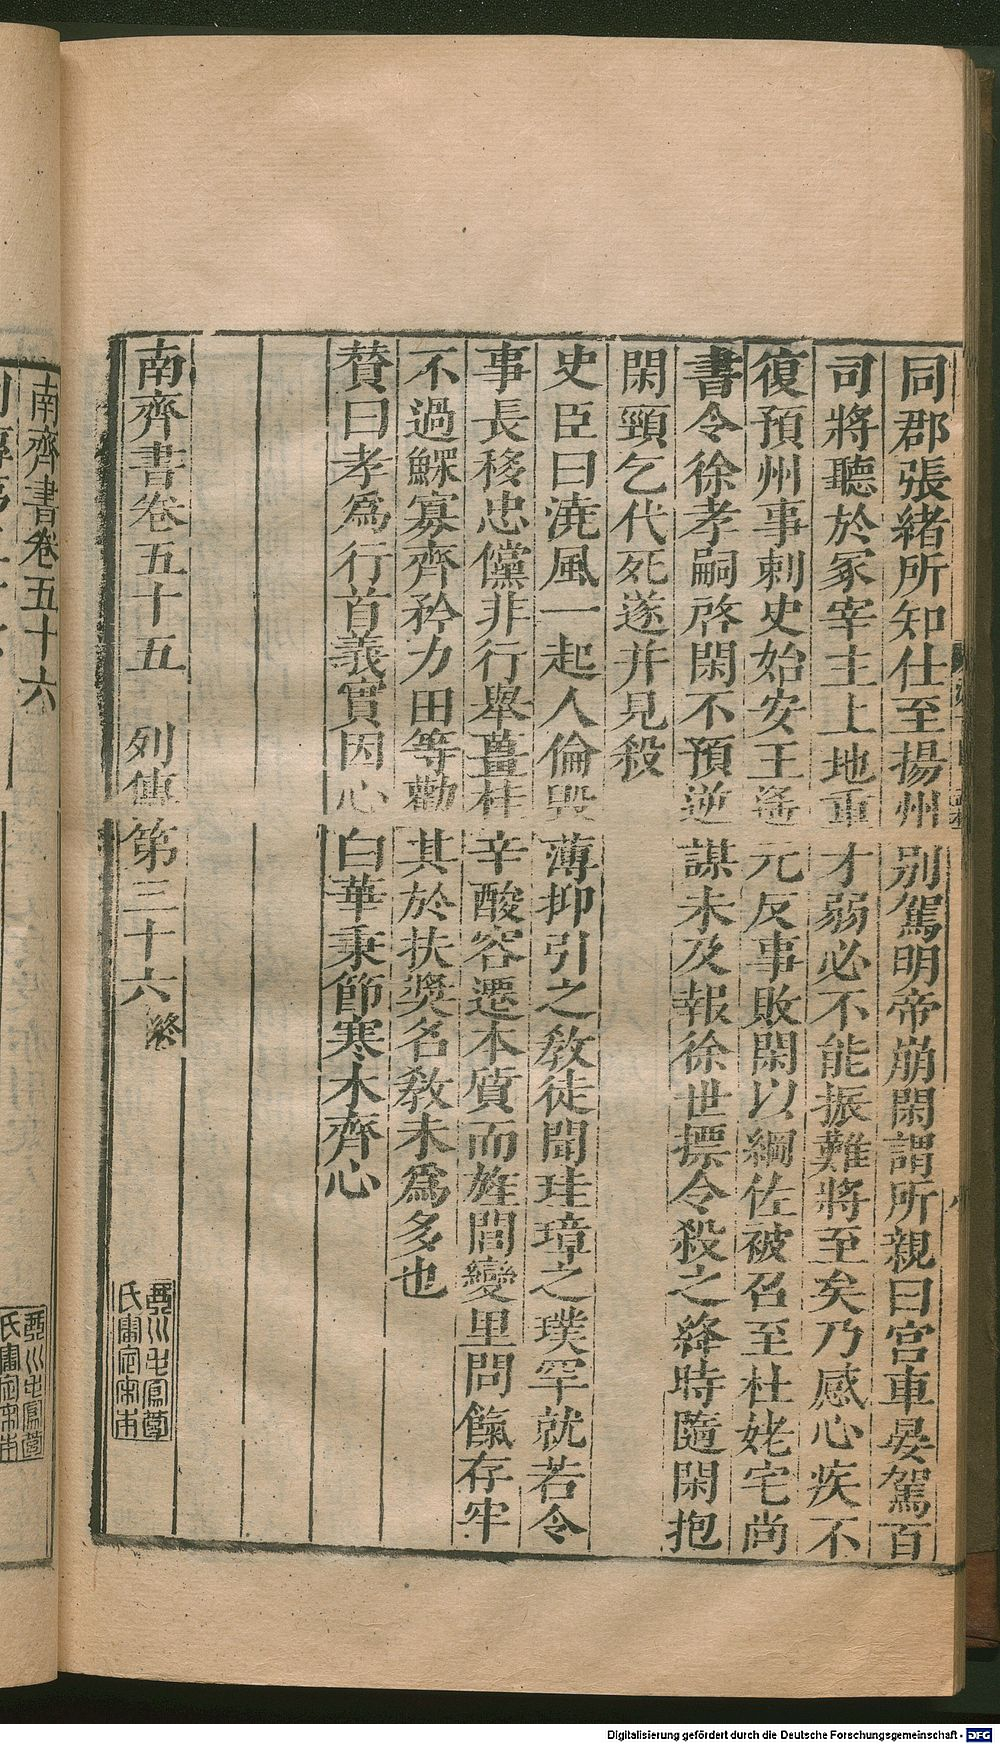 同郡張緒所知仕至揚州別駕明帝崩閑謂所親曰宮車晏駕百
司將聽於冢宰主上地重才弱必不能振難將至矣乃感心疾不
復預州事刺史始安王遙元反事敗閑以綱佐被召至杜姥宅尚
書令徐孝嗣啓閑不預逆謀未及報徐世摽令殺之絳時隨閑抱
閑頸乞代死遂并見殺
史臣曰澆風一起人倫毀薄抑引之教徒聞珪璋之璞罕就若令
事長移忠儻非行舉薑桂辛酸容遷本質而旌閭變里問餼存牢
不過鰥寡齊矜力田等勸其於扶奬名教未爲多也
贊曰孝爲行首義實因心白華秉節寒木齊心
南齊書卷五十五 列傳第三十六 終
南齊書卷五十六
Digitalisierung gefördert durch die Deutsche Forschungsgemeinschaft - DFG